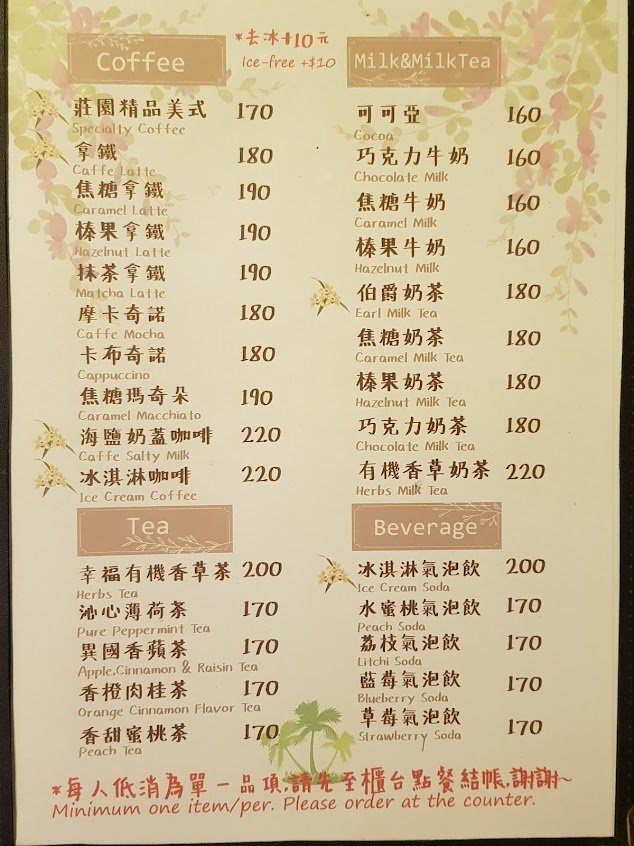 Coffee
*去冰+10元
Ice-free +$10
莊園精品美式 170
Specialty Coffee
拿鐵 180
Caffe Latte
焦糖拿鐵 190
Caramel Latte
榛果拿鐵 190
Hazelnut Latte
抹茶拿鐵 190
Matcha Latte
摩卡奇諾 180
Caffe Mocha
卡布奇諾 180
Cappuccino
焦糖瑪奇朵 190
Caramel Macchiato
海鹽奶蓋咖啡 220
Caffe Salty Milk
冰淇淋咖啡 220
Ice Cream Coffee
Tea
幸福有機香草茶 200
Herbs Tea
沁心薄荷茶 170
Pure Peppermint Tea
異國香蘋茶 170
Apple,Cinnamon & Raisin Tea
香橙肉桂茶 170
Orange Cinnamon Flavor Tea
香甜蜜桃茶 170
Peach Tea
Milk&MilkTea
可可亞 160
Cocoa
巧克力牛奶 160
Chocolate Milk
焦糖牛奶 160
Caramel Milk
榛果牛奶 160
Hazelnut Milk
伯爵奶茶 180
Earl Milk Tea
焦糖奶茶 180
Caramel Milk Tea
榛果奶茶 180
Hazelnut Milk Tea
巧克力奶茶 180
Chocolate Milk Tea
有機香草奶茶 220
Herbs Milk Tea
Beverage
冰淇淋氣泡飲 200
Ice Cream Soda
水蜜桃氣泡飲 170
Peach Soda
荔枝氣泡飲 170
Litchi Soda
藍莓氣泡飲 170
Blueberry Soda
草莓氣泡飲 170
Strawberry Soda
*每人低消為單一品項,請先至櫃台點餐結帳,謝謝~
Minimum one item/per. Please order at the counter.